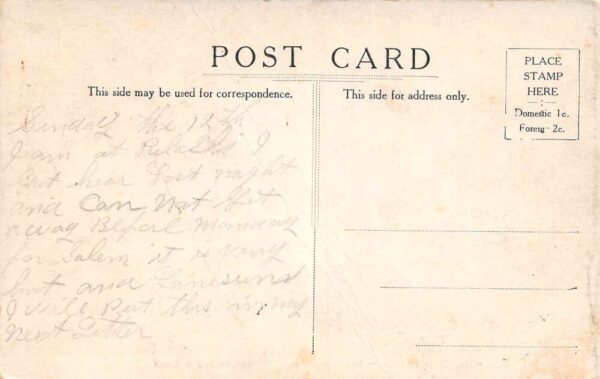 POST CARD
This side may be used for correspondence.
This side for address only.
PLACE
STAMP
HERE
Domestic 1c.
Foreig - 2c.
Sunday the 12th
I am at Pulaski I
hear Last night
and Can Not Get
away Before Monday
for Salem it is very
hot and
I will Put this in my
Next Letter